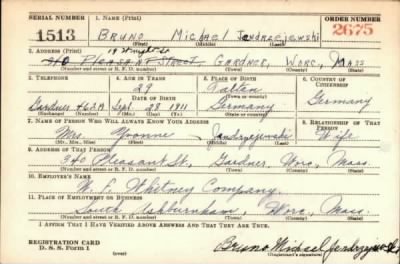 SERIAL NUMBER 1. NAME (Print) ORDER NUMBER
1513 BRUNO MICHAEL Jendrzejewski 2675
(First) (Middle) (Last)
2. ADDRESS (Print)
340 PLEASANT STREET, GARDNER, WORC, MASS
(Number and street or R. F. D. number) (Town) (County) (State)
3. TELEPHONE 4. AGE IN YEARS 5. PLACE OF BIRTH 6. COUNTRY OF CITIZENSHIP
29
DATE OF BIRTH (Town or county)
Gardner 463R Sept. 28 1911 Germany Germany
(Exchange) (Number) (Mo.) (Day) (Yr.) (State or country)
7. NAME OF PERSON WHO WILL ALWAYS KNOW YOUR ADDRESS 8. RELATIONSHIP OF THAT PERSON
Mrs. Yvonne Jendrzejewski Wife
(Mr., Mrs., Miss) (First) (Middle) (Last)
9. ADDRESS OF THAT PERSON
340 Pleasant St., Gardner, Worc, Mass.
(Number and street or R. F. D. number) (Town) (County) (State)
10. EMPLOYER'S NAME
W. F. Whitney Company.
11. PLACE OF EMPLOYMENT OR BUSINESS
South Ashburnham, Worc, Mass.
(Number and street or R. F. D. number) (Town) (County) (State)
I AFFIRM THAT I HAVE VERIFIED ABOVE ANSWERS AND THAT THEY ARE TRUE.
REGISTRATION CARD
D. S. S. Form 1 (over) Bruno Michael Jendrzejewski
(Registrant's signature)